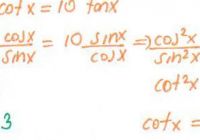 cot x = 10 tanx
cosx/sinx = 10 sinx/cosx => cos²x/sin²x
cot²x
3 cotx =